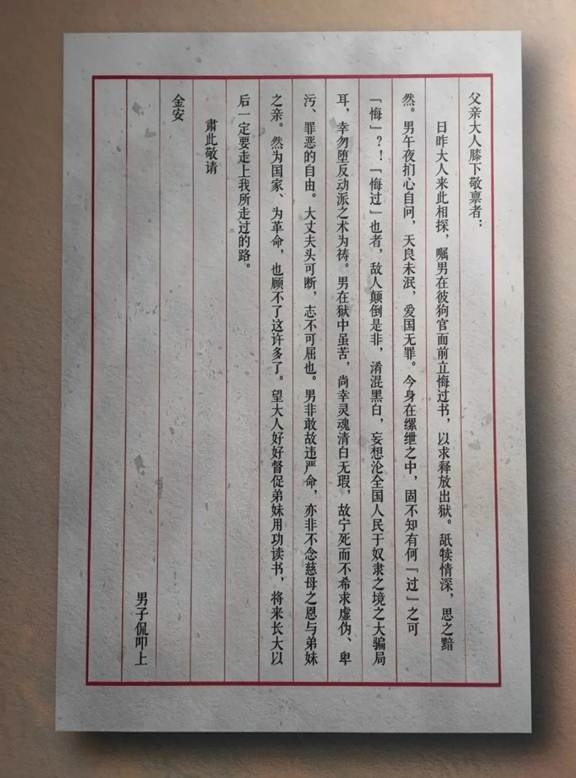 父亲大人膝下敬禀者：
日昨大人来此相探，嘱男在彼狗官面前立悔过书，以求释放出狱。舐犊情深，思之黯
然。男午夜扪心自问，天良未泯，爱国无罪。今身在缧绁之中，固不知有何「过」之可
「悔」？！「悔过」也者，敌人颠倒是非，淆混黑白，妄想沦全国人民于奴隶之境之大骗局
耳，幸勿堕反动派之术为祷。男在狱中虽苦，尚幸灵魂清白无瑕，故宁死而不希求虚伪、卑
污、罪恶的自由。大丈夫头可断，志不可屈也。男非敢故违严命，亦非不念慈母之恩与弟妹
之亲。然为国家、为革命，也顾不了这许多了。望大人好好督促弟妹用功读书，将来长大以
后一定要走上我所走过的路。
肃此敬请
金安
男子侃叩上